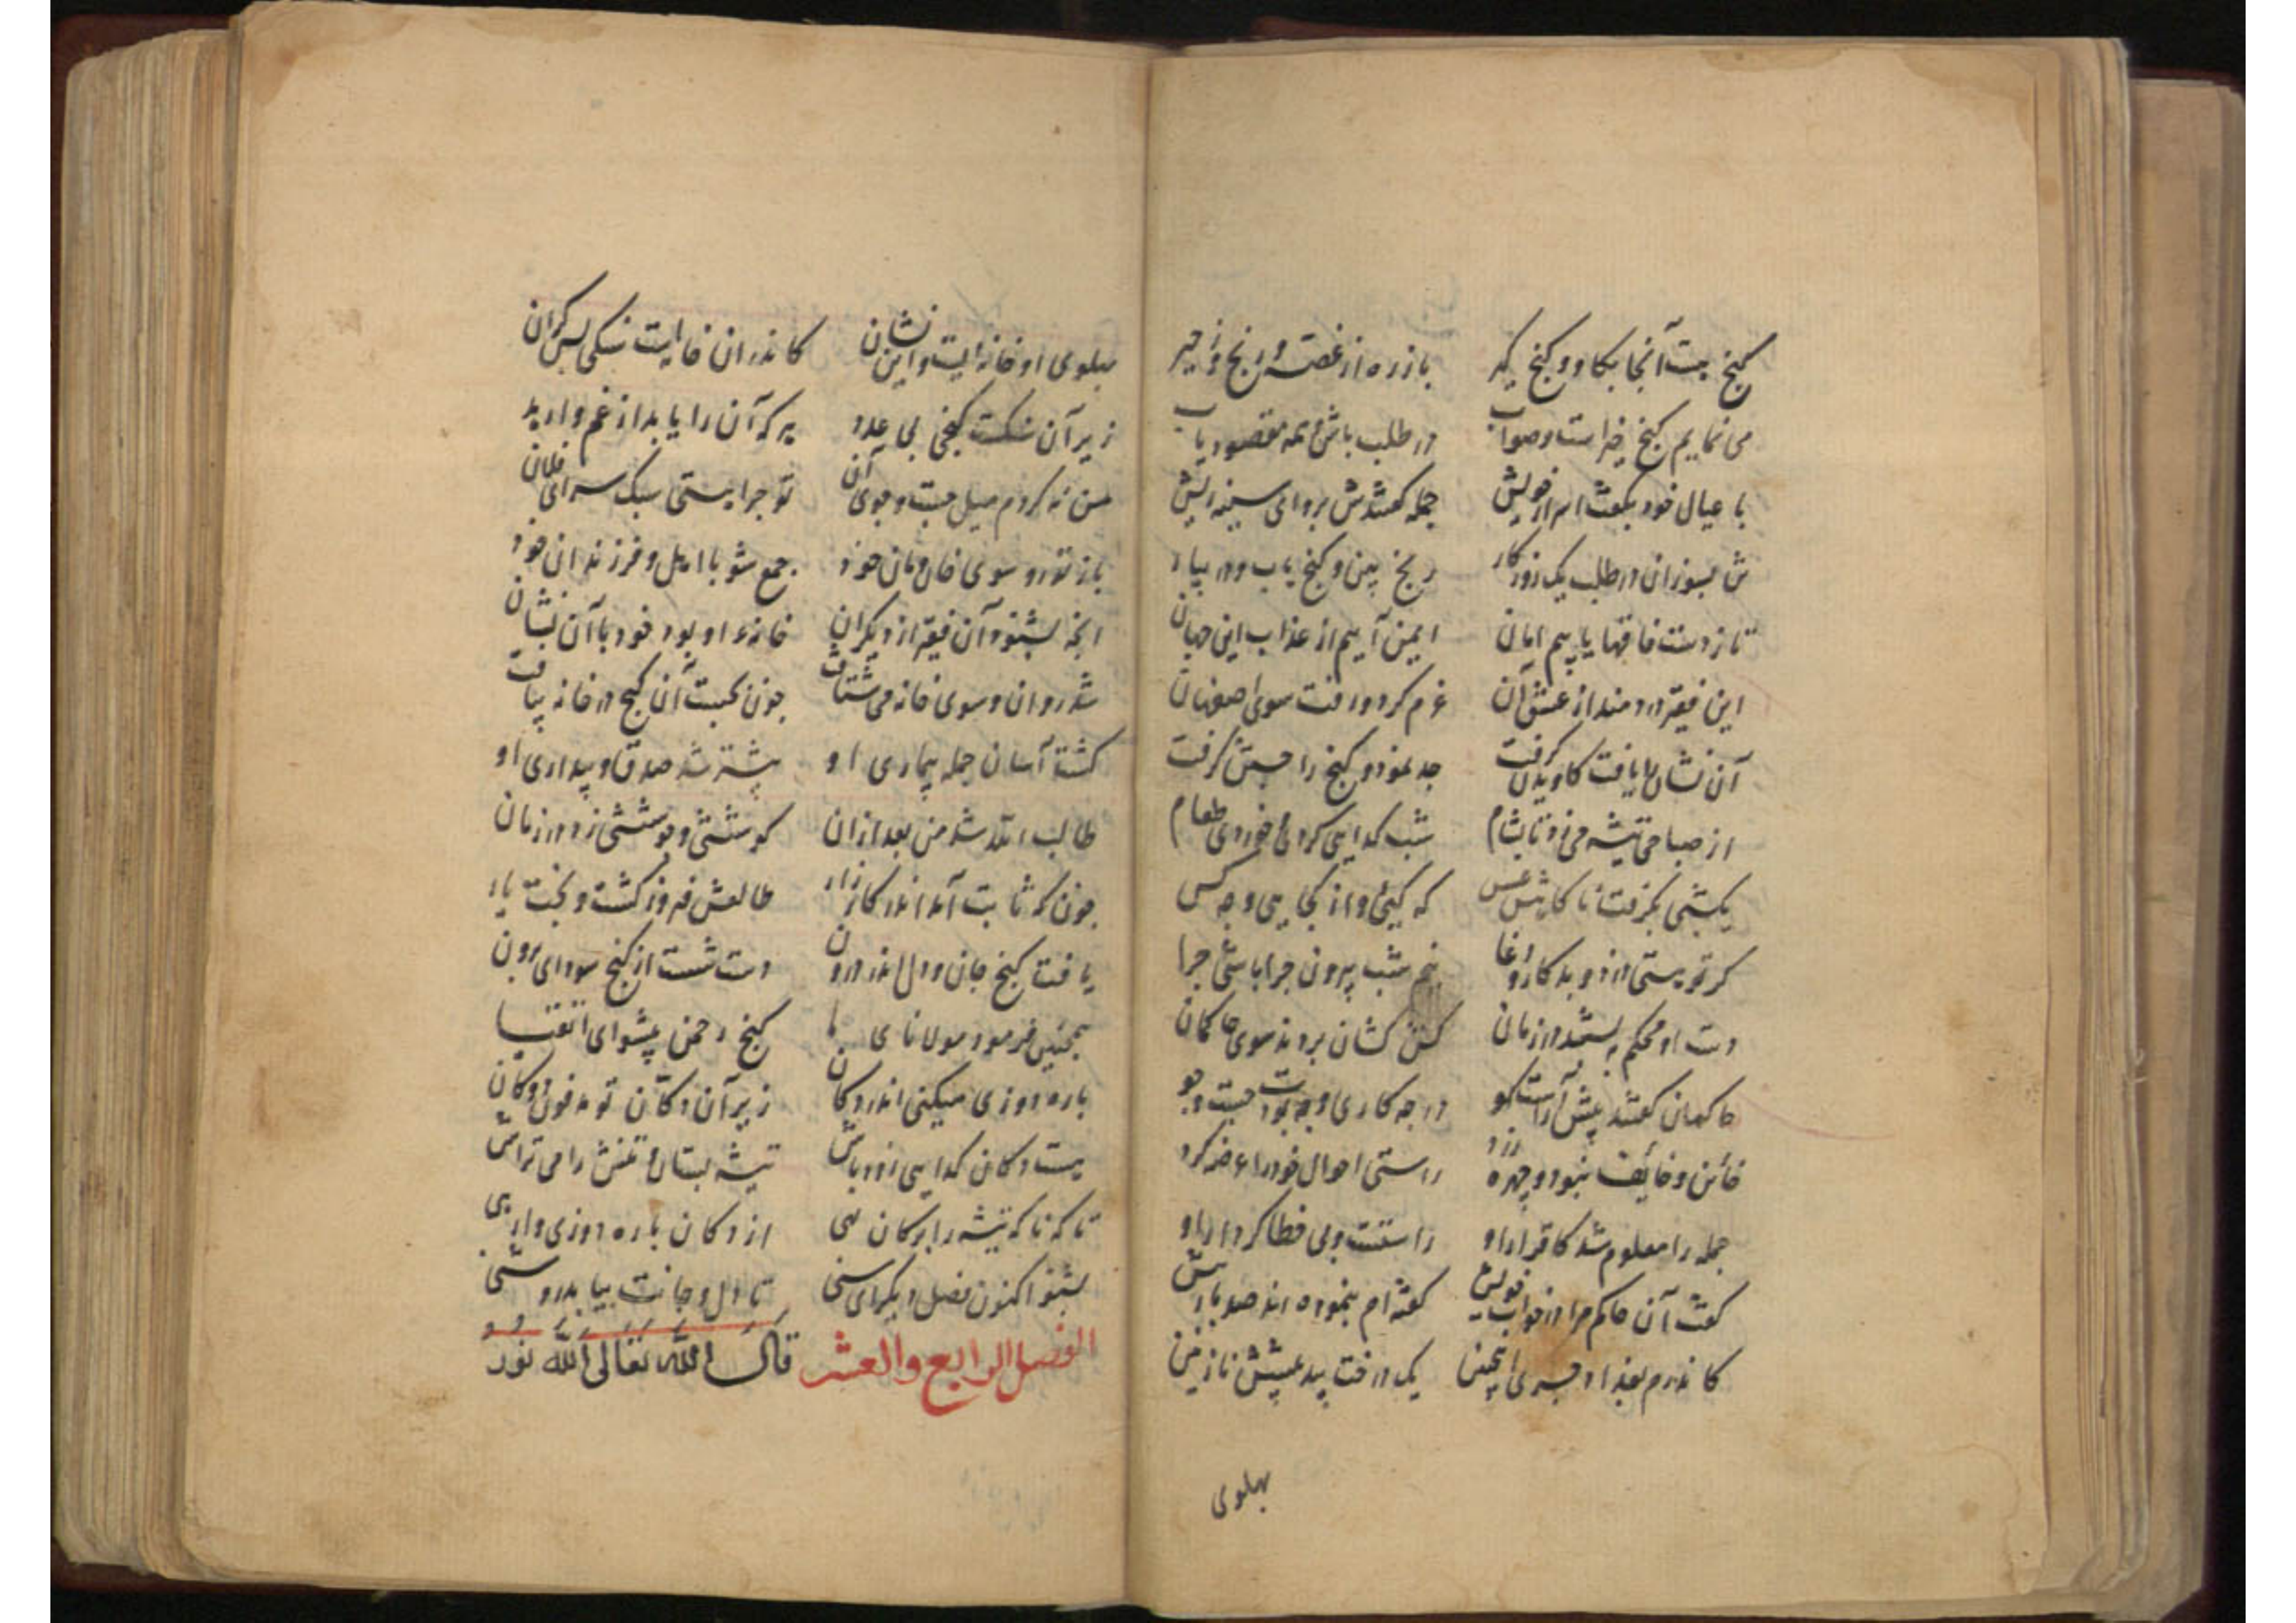 گنج هست آنجا بکاو و گنج گیر باز ره از غصه و رنج و زحیر
می نمایم گنج خیر است و صواب در طلب باش و همه مقصود یاب
با عیال خود بگفت اسرار خویش جمله گفتندش برو ای سینه ریش
شو بسوزان در طلب یک روزگار رنج بین و گنج یاب و در بیار
تا ز دست فاقها یابیم امان ایمن آییم از عذاب این جهان
این فقیر دردمند از عشق آن عزم کرد و رفت سوی اصفهان
آن نشان را یافت کاویدن گرفت جد نمود و گنج را جستن گرفت
از صباحی تیشه می زد تا بشام شب گدایی کردی و خوردی طعام
یکشبی بگرفت ناگاهش عسس که کیی و از کجایی و چه کس
گر تو نیستی دزد و بدکار و دغا نیم شب بیرون چرا باشی چرا
دست او محکم ببستند در زمان کش کشان بردند سوی حاکمان
حاکمان گفتند پیش آ راست گو در چه کاری و چه بودت جست و جو
خائن و خایف نبود و چهره زرد راستی احوال خود را عرضه کرد
جمله را معلوم شد کاقرار او راستست و بی خطا کردار او
گفت آن حاکم مرا در خواب خویش گفته ام بنموده اند صد بار بیش
کاندرم بغداد جیری اینچنین یک درخت بید پیشش نازنین
بهلوی
پهلوی او خانه ایست و این نشان کاندران خانه است سنگی بس گران
زیر آن سنگست گنجی بی عدد هر که آن را یابد از غم وارهد
من نه کردم میل جست و جوی آن تو چرایستی سبک سر ای فلان
باز تو رو سوی خان و مان خود جمع شو با اهل و فرزندان خود
آنچه بشنود آن فقیر از دیگران خانه او بود خود با آن نشان
شد روان و سوی خانه می شتافت چون بجست آن گنج در خانه بیافت
گشت آسان جمله بیماری او بیشتر شد صدق و بیداری او
طالب الله شد من بعد ازان کوششی و جوششی زد در زمان
چون که ثابت آمد اندر کارزار طالعش فیروز گشت و بخت یار
یافت گنج جان و دل اندر درون دست شست از گنج سودای برون
همچنین فرمود مولانای ما گنج رحمن پیشوای اتقیا
پاره دوزی میکنی اندر دکان زیر آن دکان تو مدفون دو کان
هست دکان کدایی زود باش تیشه بستان و تکش را می تراش
تا که ناکه تیشه را بر کان نهی از دکان پاره دوزی وارهی
بشنو اکنون فصل دیگر ای سنی تا دل و جانت بیابد روشنی
الفصل الرابع والعشر قال الله تعالی الله نور